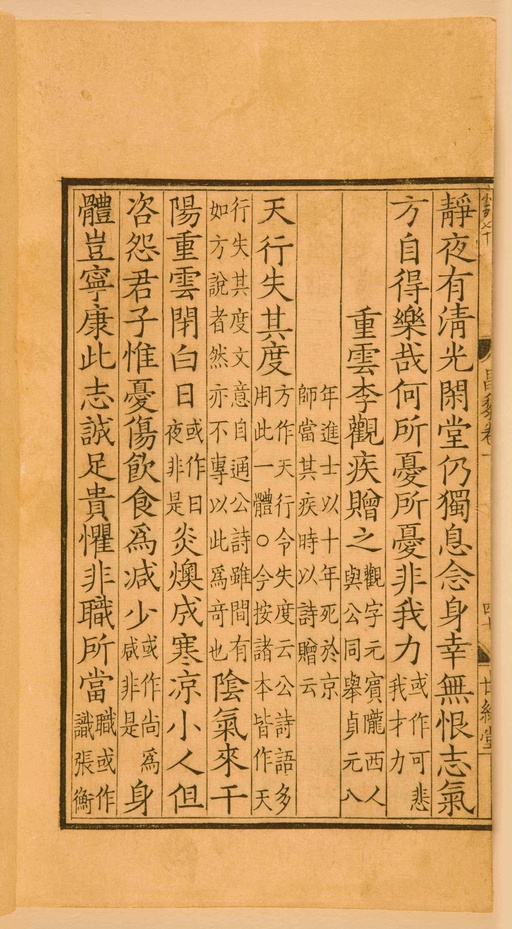 靜夜有清光閑堂仍獨息念身幸無恨志氣
方自得樂哉何所憂所憂非我力或作可悲我才力
重雲李觀疾贈之觀字元賓隴西人與公同舉貞元八
年進士以十年死於京師當其疾時以詩贈云
天行失其度方作天行令失度云公詩語多用此一體○今按諸本皆作天
行失其度文意自通公詩雖間有如方說者然亦不專以此爲竒也陰氣來干
陽重雲閉白日或作日夜非是炎燠成寒涼小人但
咨怨君子惟憂傷飲食爲减少或作尚爲咸非是身
體豈寧康此志誠足貴懼非職所當職或作識張衡